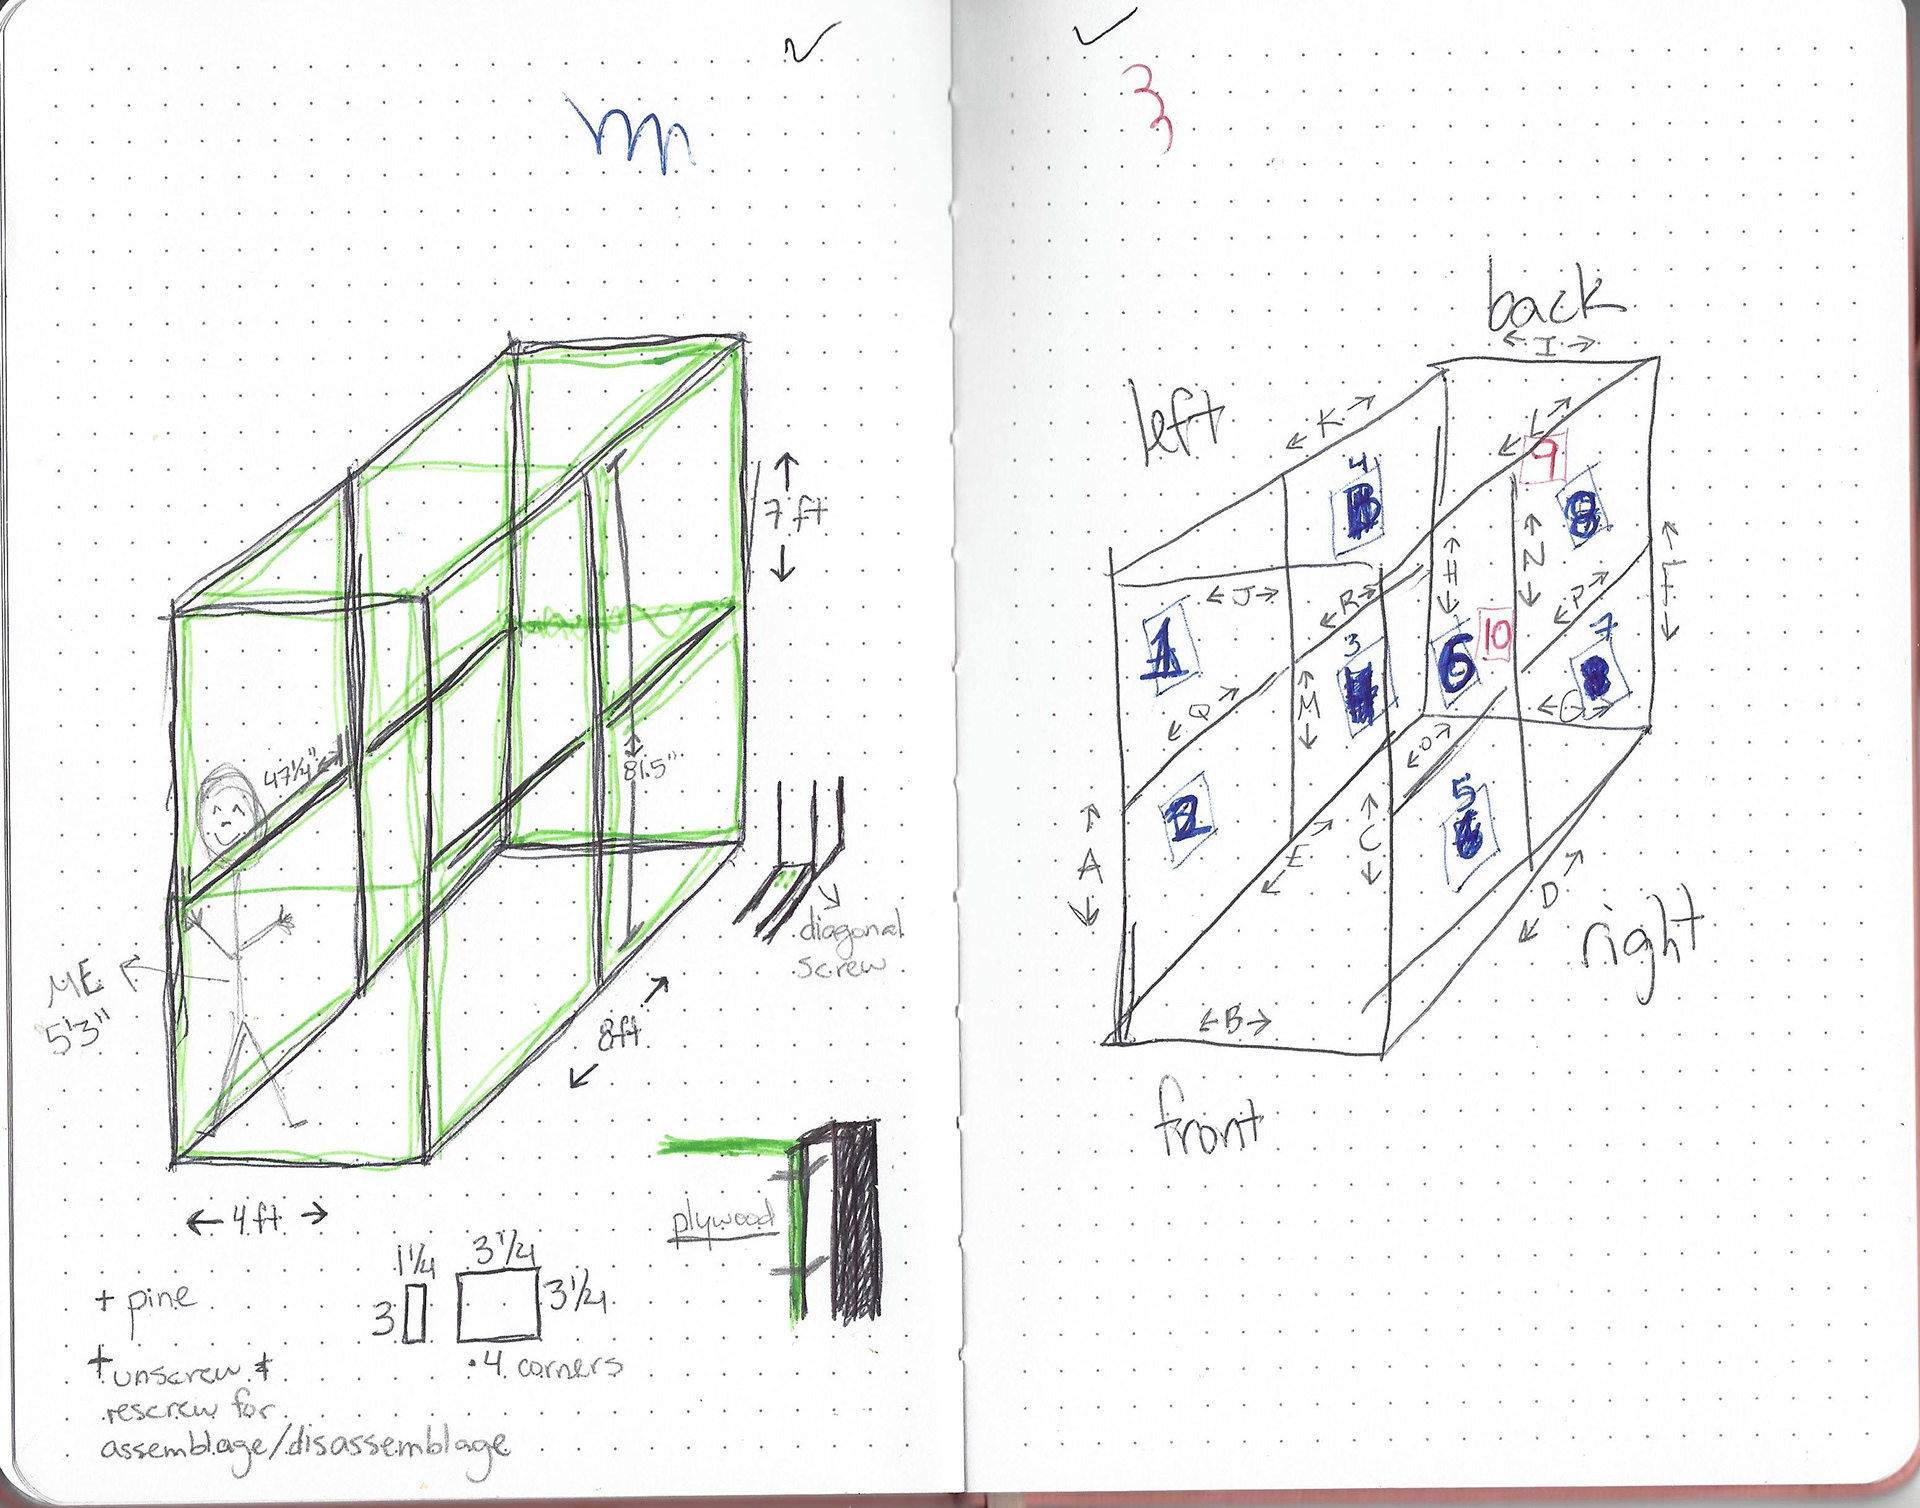 7 ft
47 1/4"
81.5"
diagonal
screw
ME
5'3"
8ft
4ft
plywood
1 1/4
3
3 1/4
3 1/4
• 4 corners
+ pine
+ unscrew &
rescrew for
assemblage/disassemblage
back
I
left
K
L
9
4
8
J
R
H
N
1
10
3
6
P
7
Q
M
G
O
2
5
A
E
C
D
right
B
front